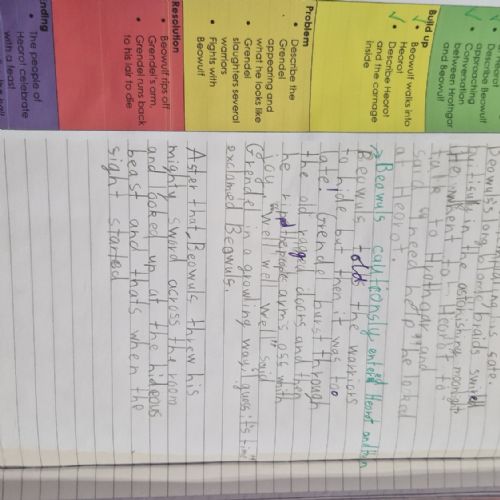 Heorot
describe Beowulf
approaching
Conversation
between Hrothgar
and Beowulf
Build up
Beowulf walks into
Heorot
Describe Heorot
and the carnage
inside
Problem
Describe the
Grendel
appearing and
what he looks like
Grendel
slaughters several
warriors
Fights with
Beowulf
Resolution
Beowulf rips off
Grendel's arm,
Grendel runs back
to his lair to die
Ending
The people of
Heorot celebrate
with a feast
is safe.
long blonde braids
in the astonishing moonlight
He went to Heorot to
talk to Hrothgar and
said "I need help
at Heorot".
→ Beowus cautiously entered Heorot and then
Beowus told the warriors
to hide but then it was too
late. Grendel burst through
the old ragged doors and then
he ripped the peoples arms oss with
joy! "Well well well" said
Grendel in a growling way.
exclaimed Beowus.
Aster that, Beowus threw his
mighty sword across the room
and looked up at the hideous
beast and thats when the
sight started